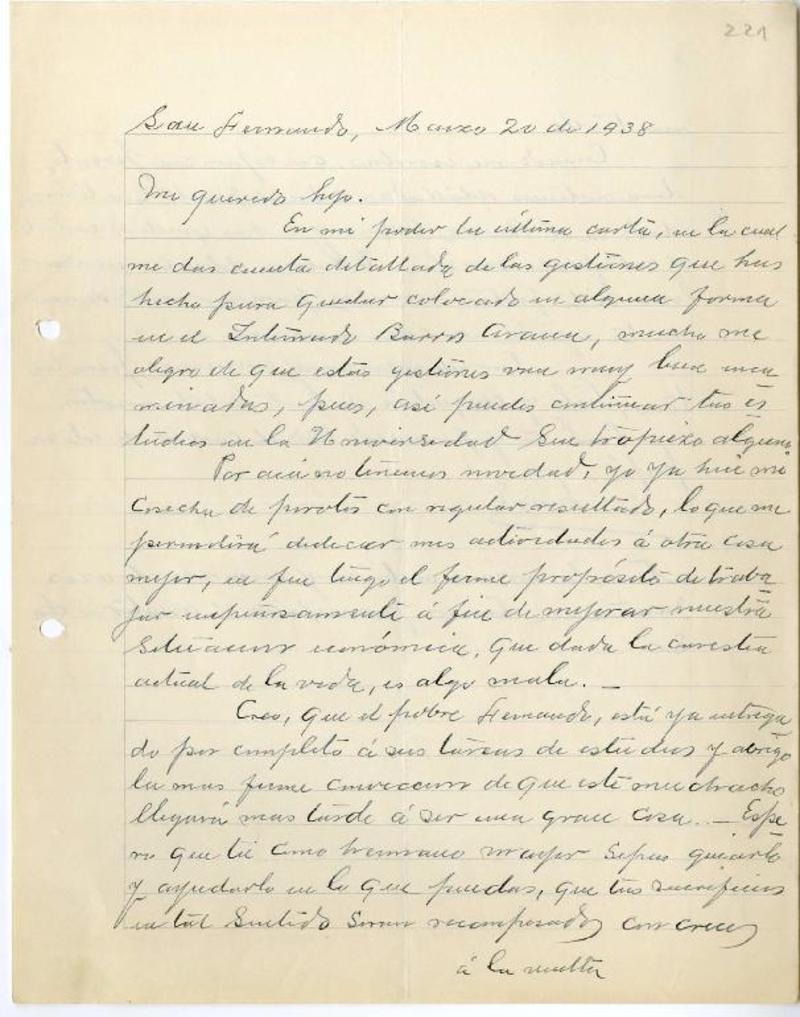 221
San Fernando, Marzo 20 de 1938
Mi querido hijo.
En mi poder tu última carta, en la cual
me das cuenta detallada de las gestiones que has
hecho para quedar colocado en alguna forma
en el Internado Barros Arana, mucho me
alegro de que estas gestiones van muy bien enca
minadas, pues, así puedes continuar tus es
tudios en la Universidad sin tropiezo alguno.
Por acá no tenemos novedad, yo ya hice mi
cosecha de porotos con regular resultado, lo que me
permitirá dedicar mis actividades á otra cosa
mejor, en fin tengo el firme propósito de traba
jar á fin de mejorar nuestra
situación económica, que dada la carestia
actual de la vida, es algo mala. —
Creo, que el pobre Fernando, está ya entrega
do por completo á sus tareas de estudios y abrigo
la mas firme conviccion de que este muchacho
llegará mas tarde á ser una gran cosa. — Espe
ro que tú como hermano mayor sepas guiarlo
y ayudarlo en lo que puedas, que tus sacrificios
en tal sentido seran recompensados con creces
á la vuelta